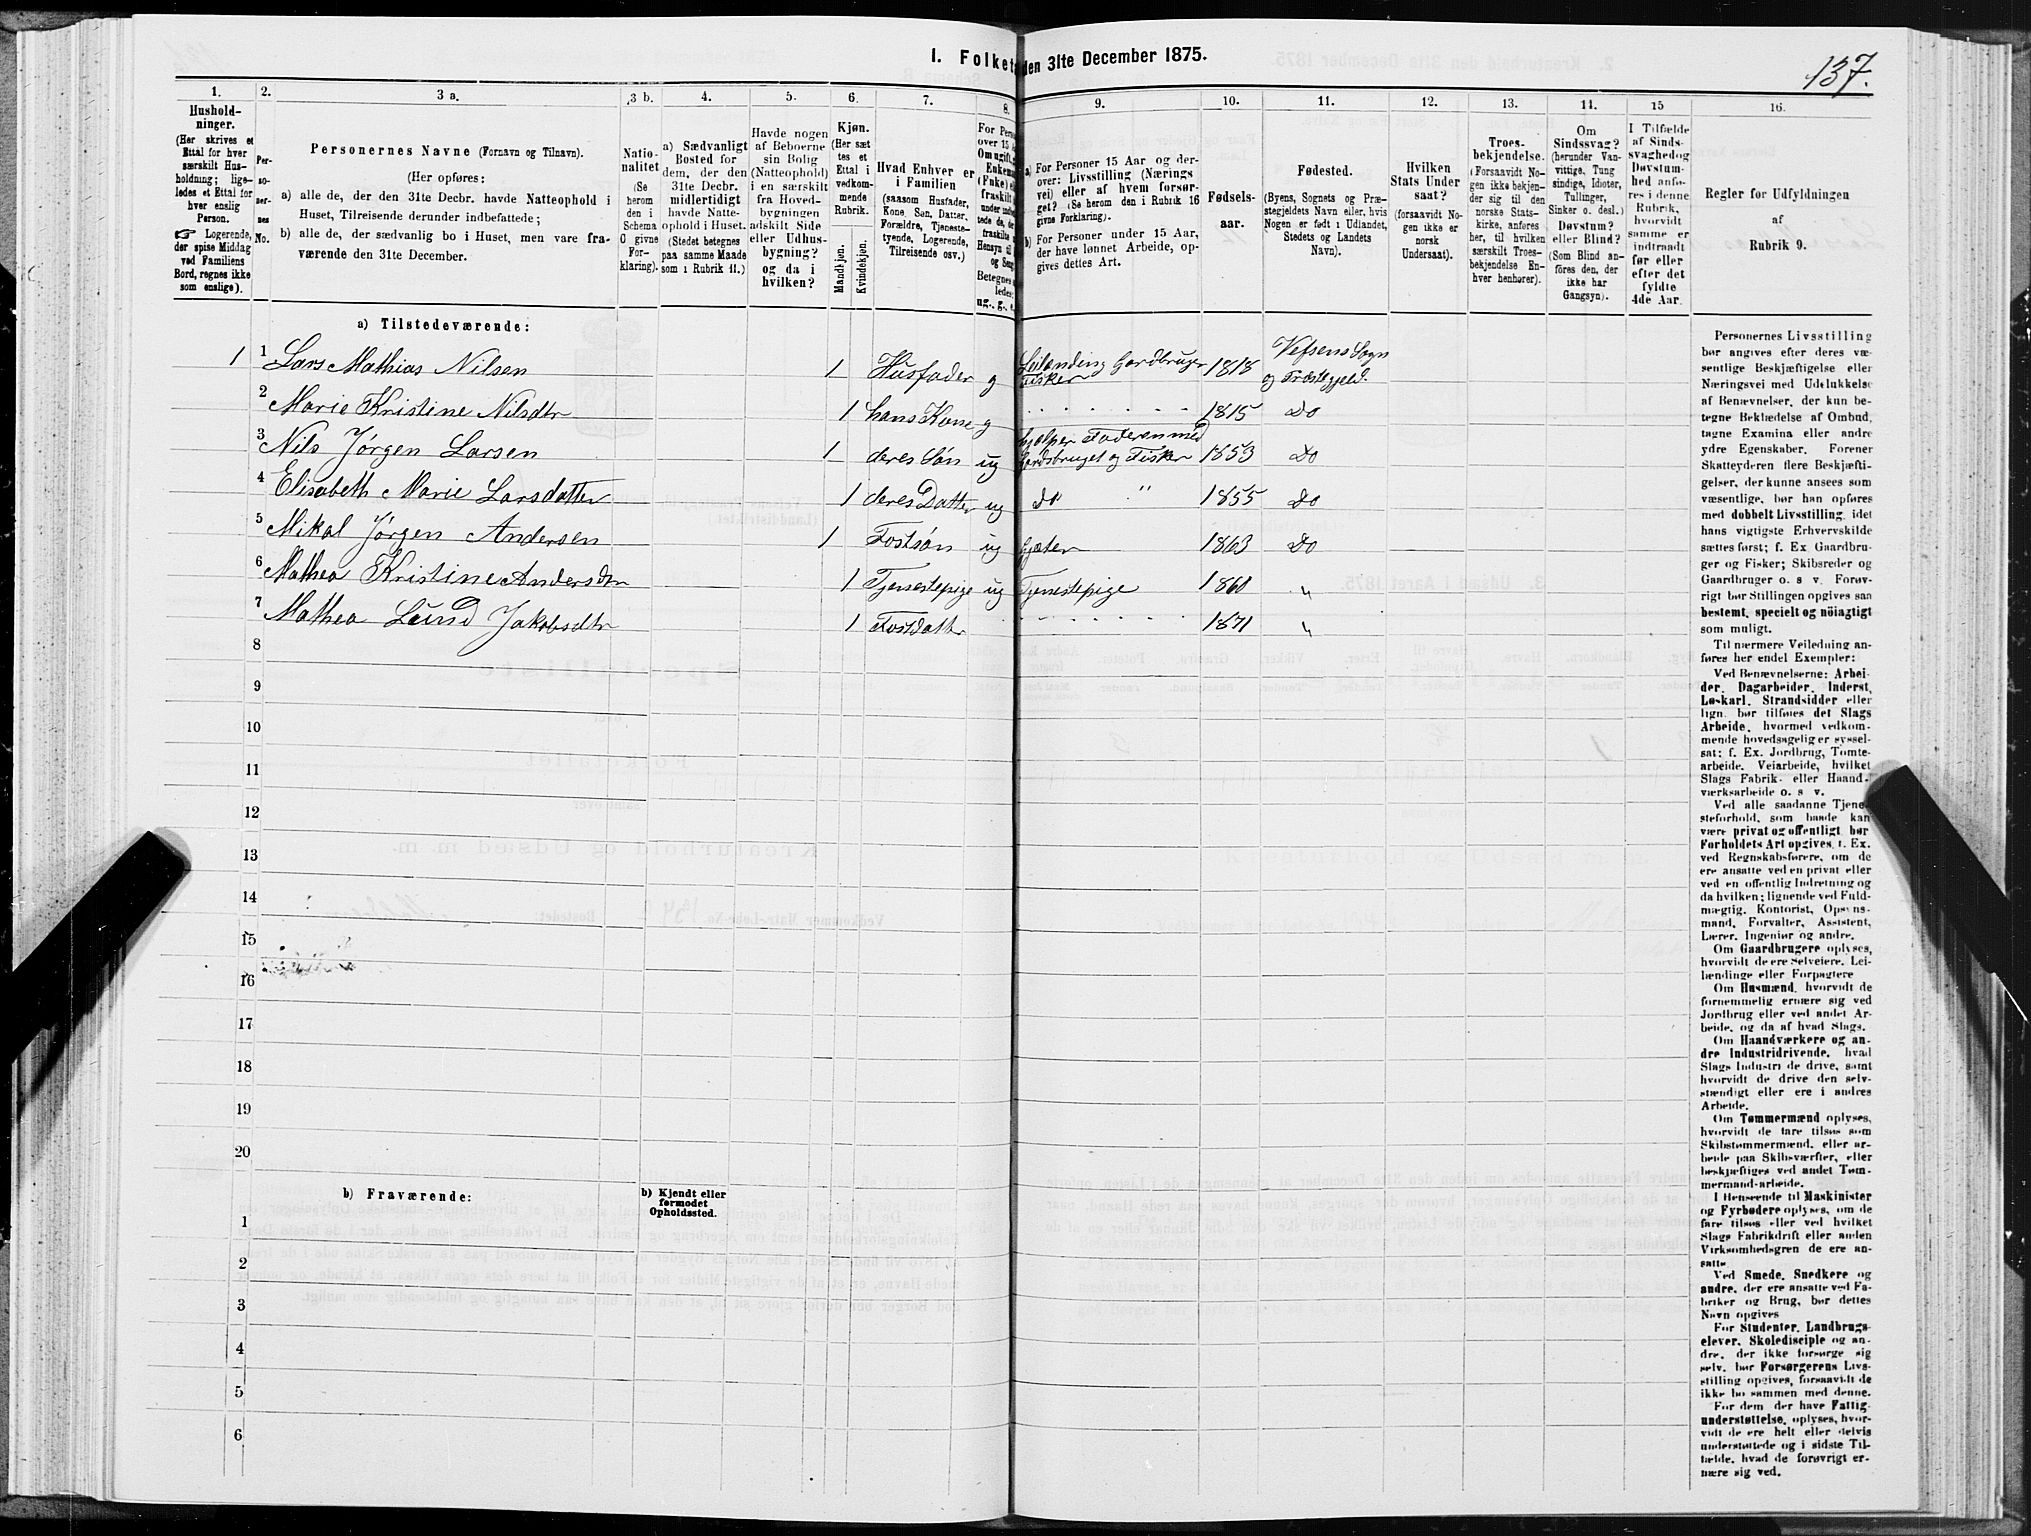 137.
I. Folket den 31te December 1875.
1. 2. 3 a. 3 b. 4. 5. 6. 7. 8. 9. 10. 11. 12. 13. 14. 15 16.
Hushold-
ninger.
(Her skrives et
Ettal for hver
særskilt Hus-
holdning; lige-
ledes et Ettal for
hver enslig
Person.
☞ Logerende,
der spise Middag
ved Familiens
Bord, regnes ikke
som enslige).
Per-
so-
ner-
nes
No.
Personernes Navne (Fornavn og Tilnavn).
(Her opføres:
a) alle de, der den 31te Decbr. havde Natteophold i
Huset, Tilreisende derunder indbefattede;
b) alle de, der sædvanlig bo i Huset, men vare fra-
værende den 31te December.
Natio-
nalitet
(Se
herom
den i
Schema
C givne
For-
klaring).
a) Sædvanligt
Bosted for
dem, der den
31te Decbr.
midlertidigt
havde Natte-
ophold i Huset.
(Stedet betegnes
paa samme Maade
som i Rubrik 11.)
Havde nogen
af Beboerne
sin Bolig
(Natteophold)
i en særskilt
fra Hoved-
bygningen
adskilt Side
eller Udhus-
bygning?
og da i
hvilken?
Kjøn.
(Her sæt
tes et
Ettal i
vedkom-
mende
Rubrik.
Mandkjøn.
Kvindekjøn.
Hvad Enhver er
i Familien
(saasom Husfader,
Kone, Søn, Datter,
Forældre, Tjeneste-
tyende, Logerende,
Tilreisende osv.)
For Pers
over 15 A
Om ugift,
Enkema
(Fnke) e
fraskilt
Betegnes
ledes:
ug., g., e
a) For Personer 15 Aar og der-
over: Livsstilling (Nærings
vei) eller af hvem forsør-
get? (Se herom den i Rubrik 16
givne Forklaring).
b) For Personer under 15 Aar,
der have lønnet Arbeide, op-
gives dettes Art.
Fødsels-
aar.
Fødested.
(Byens, Sognets og Præ-
stegjeldets Navn eller, hvis
Nogen er født i Udlandet,
Stedets og Landets
Navn).
Hvilken
Stats Under
saat?
(forsaavidt No-
gen ikke er
norsk
Undersaat).
Troes-
bekjendelse.
(Forsaavidt No-
gen ikke bekjen-
der sig til den
norske Stats-
kirke, anføres
her, til hvilken
særskilt Troes-
bekjendelse En-
hver henhører).
Om
Sindssvag?
(herunder Van-
vittige, Tung
sindige, Idioter,
Tullinger,
Sinker o. desl.)
Døvstum?
eller Blind?
(Som Blind an-
føres den, der
ikke har
Gangsyn).
I Tilfælde
af Sinds-
svaghed og
Døvstum-
hed anfø-
res i denne
Rubrik,
hvorvidt
samme er
indtraadt
før eller
efter det
fyldte
4de Aar.
Regler før Udfyldningen
af
Rubrik 9.
a) Tilstedeværende:
1 1 Lars Mathias Nilsen 1 Husfader g Leilænding Gardbruger Fisker 1818 Vefsens Sogn og Præstegjeld.
2 Marie Kristine Nilsdtr 1 hans Kone g 1815 Do
3 Nils Jørgen Larsen 1 deres Søn ug hjælper Faderen med Gardsbruget og Fisker 1853 Do
4 Elisabeth Marie Larsdatter 1 deres Datter ug do " 1855 Do
5 Mikal Jørgen Andersen 1 Fostsøn ug Gjæter 1863 Do
6 Mathea Kristine Andersdtr 1 Tjenestepige ug Tjenestepige 1860 "
7 Mathea Lund Jakobsdtr 1 Fostdatter 1871 "
8
9
10
11
12
13
14
15
16
17
18
19
20
b) Fraværende:
b) Kjendt eller
formodet
Opholdssted.
1
2
3
4
5
6
Personernes Livsstilling
bør angives efter deres væ-
sentlige Beskjæftigelse eller
Næringsvei med Udelukkelse
af Benævnelser, der kun be-
tegne Beklædelse af Ombud,
tagne Examina eller andre
ydre Egenskaber. Forener
Skatteyderen flere Beskjæfti-
gelser, der kunne ansees som
væsentlige, bør han opføres
med dobbelt Livsstilling, idet
hans vigtigste Erhvervskilde
sættes først; f. Ex Gaardbru-
ger og Fisker; Skibsreder og
Gaardbruger o. s v. Forøv-
rigt bør Stillingen opgives saa
bestemt, specielt og nöiagtigt
som muligt.
Til nærmere Veiledning an-
føres her endel Exempler:
Ved Benævnelserne: Arbei-
der, Dagarbeider, Inderst,
Løskarl, Strandsidder eller
lign. bør tilføies det Slags
Arbeide, hvormed vedkom-
mende hovedsagelig er syssel-
sat; f. Ex. Jordbrug, Tomte-
arbeide, Veiarbeide, hvilket
Slags Fabrik- eller Haand-
værksarbeide o. s v.
Ved alle saadanne Tjene-
steforhold, som baade kan
være privat og offentligt, bør
Forholdets Art opgives, f. Ex.
ved Regnskabsførere, om de
ere ansatte ved en privat eller
ved en offentlig Indretning og
da hvilken; lignende ved Fuld-
mægtig, Kontorist, Opsyns-
mand, Forvalter, Assistent,
Lærer, Ingeniør og andre.
Om Gaardbrugere oplyses,
hvorvidt de ere Selveiere, Lei-
lændinge eller Forpagtere
Om Husmænd, hvorvidt de
fornemmelig ernære sig ved
Jordbrug eller ved andet Ar-
beide, og da af hvad Slags.
Om Haandværkere og an-
dre Industridrivende, hvad
Slags Industri de drive, samt
hvorvidt de drive den selv-
stændigt eller ere i andres
Arbeide.
Om Tømmermænd oplyses,
hvorvidt de fare tilsøs som
Skibstømmermænd, eller ar-
beide paa Skibsværfter, eller
beskjæftiges ved andet Tøm-
mermand-arbeide.
I Henseende til Maskinister
og Fyrbødere oplyses, om de
fare tilsøs eller ved hvilket
Slags Fabrikdrift eller anden
Virksomhedsgren de ere an-
satte
Ved Smede, Snedkere og
andre, der ere ansatte ved Fa-
briker og Brug, bør dettes
Navn opgives
For Studenter, Landbrugs-
elever, Skoledisciple og an-
dre, der ikke forsørge sig
selv, bør Forsørgerens Livs-
stilling opgives, forsaavidt de
ikke bo sammen med denne.
For dem, der have Fattig-
understøttelse, oplyses, hvor-
vidt de ere helt eller delvis
understøttede og i sidste Til-
fælde, hvad de forøvrigt er-
nære sig ved.